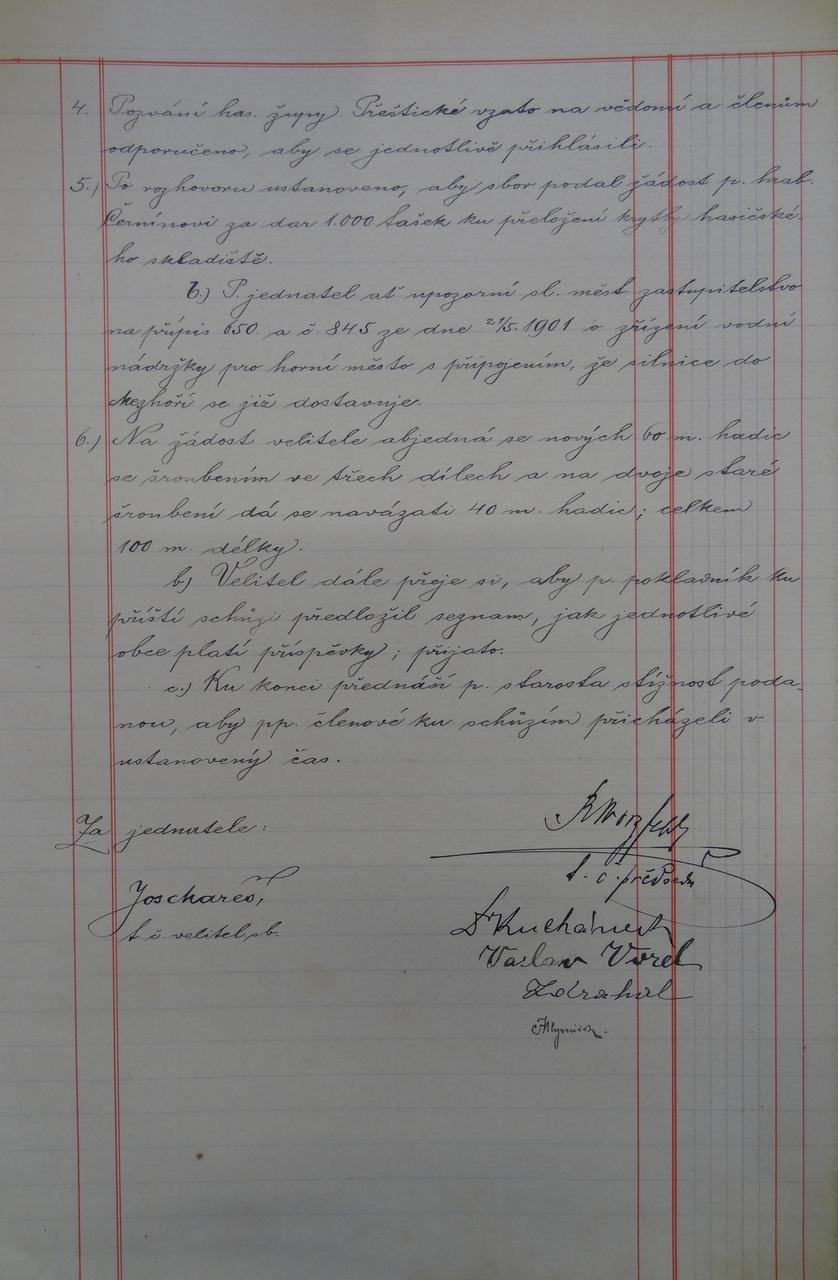 4. Pozvání has. župy Přeštické vzato na vědomí a členům
odporučeno, aby se jednotlivě přihlásili.
5.) Po rozhovoru ustanoveno, aby sbor podal žádost p. hrab.
Černínovi za dar 1.000 tašek ku přeložení krytby hasičské-
ho skladiště.
b.) P. jednatel ať upozorní sl. měst. zastupitelstvo
na přípis 650. a č. 845 ze dne 21/5. 1901 o zřízení vodní
nádržky pro horní město s připojením, že silnice do
Mezhoří se již dostavuje.
6.) Na žádost velitele objedná se nových 60 m. hadic
se šroubením ve třech dílech a na dvoje staré
šroubení dá se navázati 40 m. hadic; celkem
100 m. délky.
b) Velitel dále přeje si, aby p. pokladník ku
příští schůzi předložil seznam, jak jednotlivé
obce platí příspěvky; přijato.
c.) Ku konci přednáší p. starosta stížnost poda-
nou, aby pp. členové ku schůzím přicházeli v
ustanovený čas.
Za jednatele:
t. č. předseda
t. č. velitel sb.
Vaclav Vorel
Zdrahal